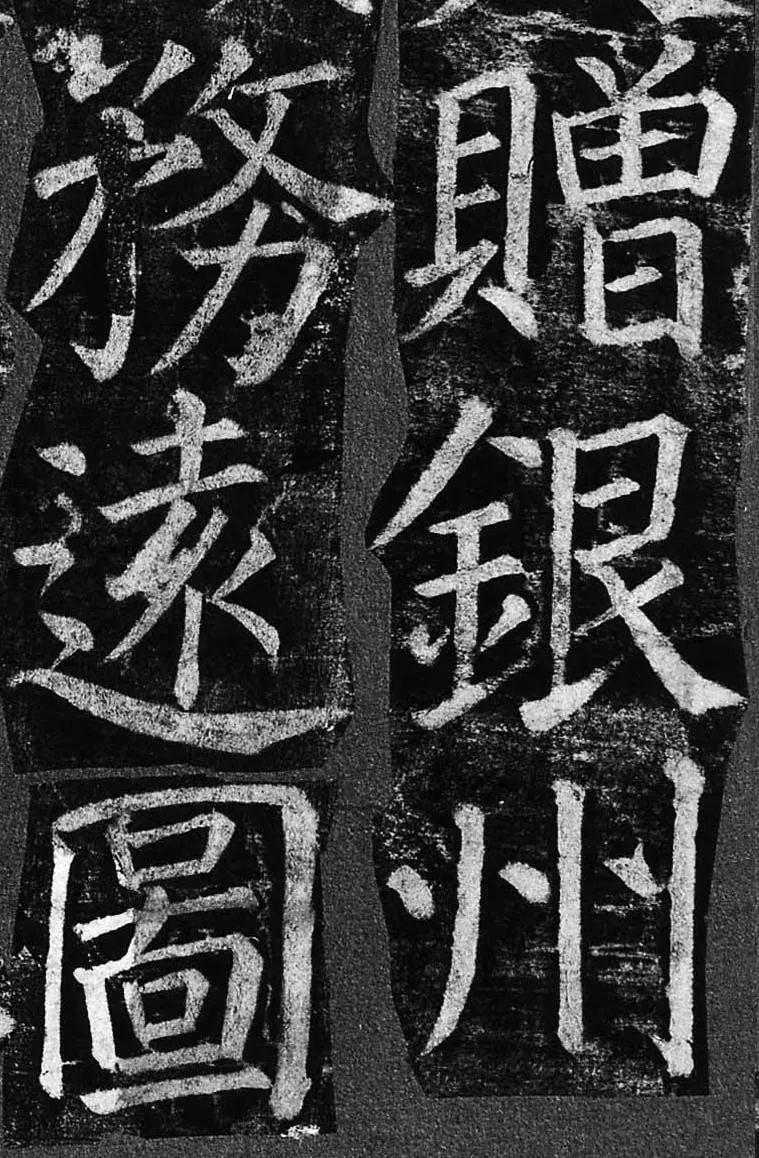 贈銀州
務遠圖